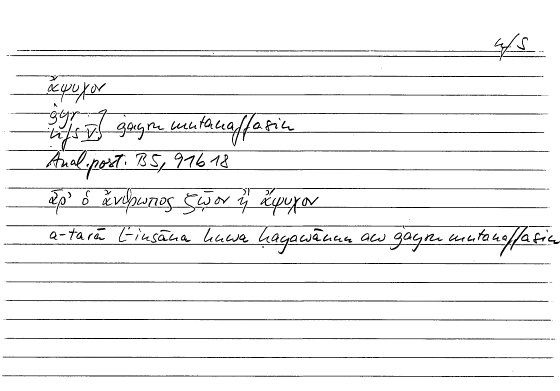 n/s
ἄψυχον
ġyr
nfs V } ġayru mutanaffasin
Anal. post. B5, 91b18
ἆρ' ὁ ἄνθρωπος ζῷον ἢ ἄψυχον
a-tarā l-insāna huwa ḥayawānun aw ġayru mutanaffasin